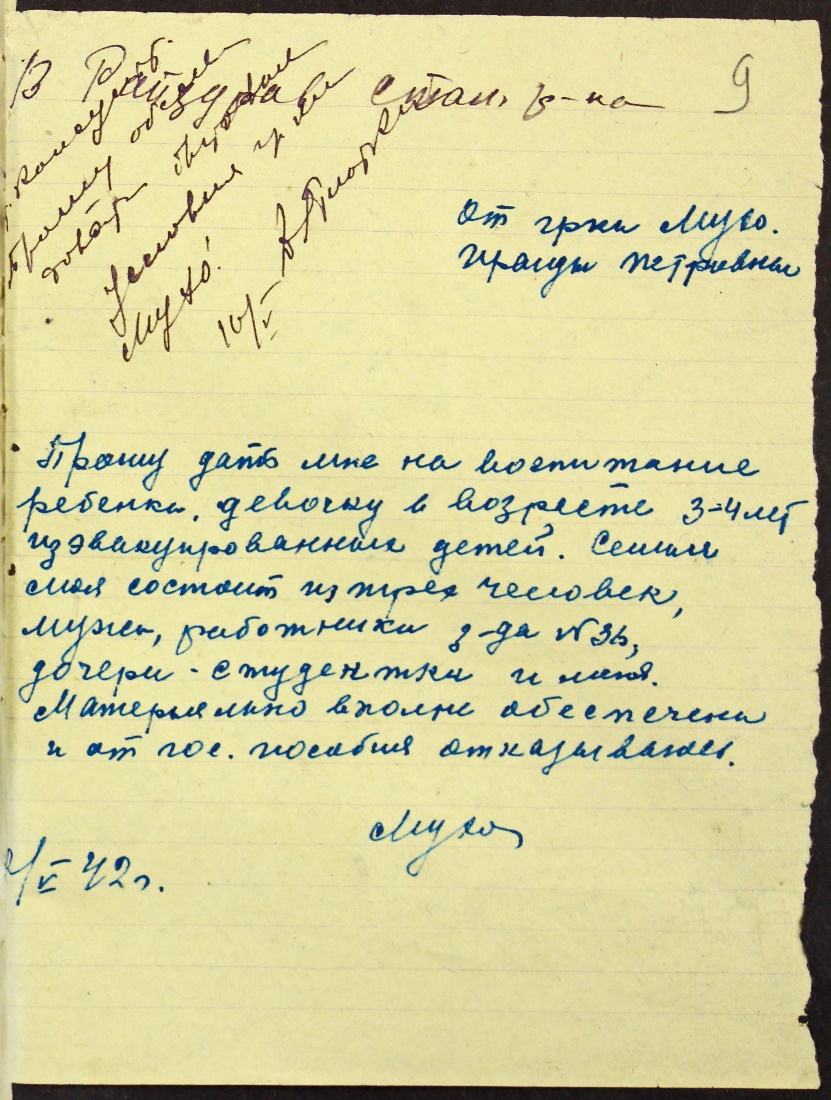 В Райздрав Стал. р-на
9
Прошу обсле
довать бытовые
Условия гр-ки
Мухо!
10/V
От гр-ки Мухо.
Ираиды Петровны
Прошу дать мне на воспитание
ребенка, девочку в возресте 3-4 лет
из эвакуированных детей. Семья
моя состоит из трех человек,
мужа, работника з-да №36,
дочери - студентки и меня.
Матерьяльно вполне обеспечена
и от гос. пособия отказываюсь.
Мухо
/V 42 г.